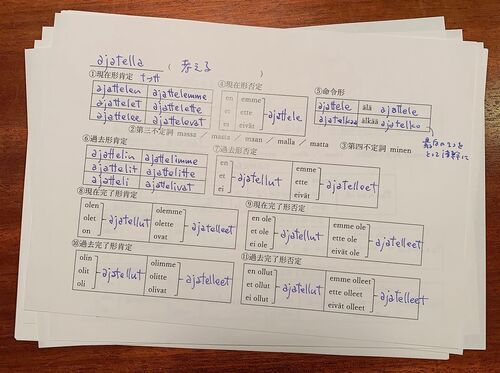 ajatella (考える)
①現在形肯定 t→tt
ajattelen ajattelemme
ajattelet ajattelette
ajattelee ajattelevat
④現在形否定
en emme
et ette
ei eivät
ajattele
⑤命令形
ajattele älä ajattele
ajatelkaa älkää ajatelko
②第三不定詞 massa / masta / maan / malla / matta
③第四不定詞 minen
⑥過去形肯定
ajattelin ajattelimme
ajattelit ajattelitte
ajatteli ajattelivat
⑦過去形否定
en emme
et ette
ei eivät
ajatellut ajatelleet
⑧現在完了形肯定
olen olemme
olet olette
on ovat
ajatellut ajatelleet
⑨現在完了形否定
en ole emme ole
et ole ette ole
ei ole eivät ole
ajatellut ajatelleet
⑩過去完了形肯定
olin olimme
olit olitte
oli olivat
ajatellut ajatelleet
⑪過去完了形否定
en ollut emme olleet
et ollut ette olleet
ei ollut eivät olleet
ajatellut ajatelleet